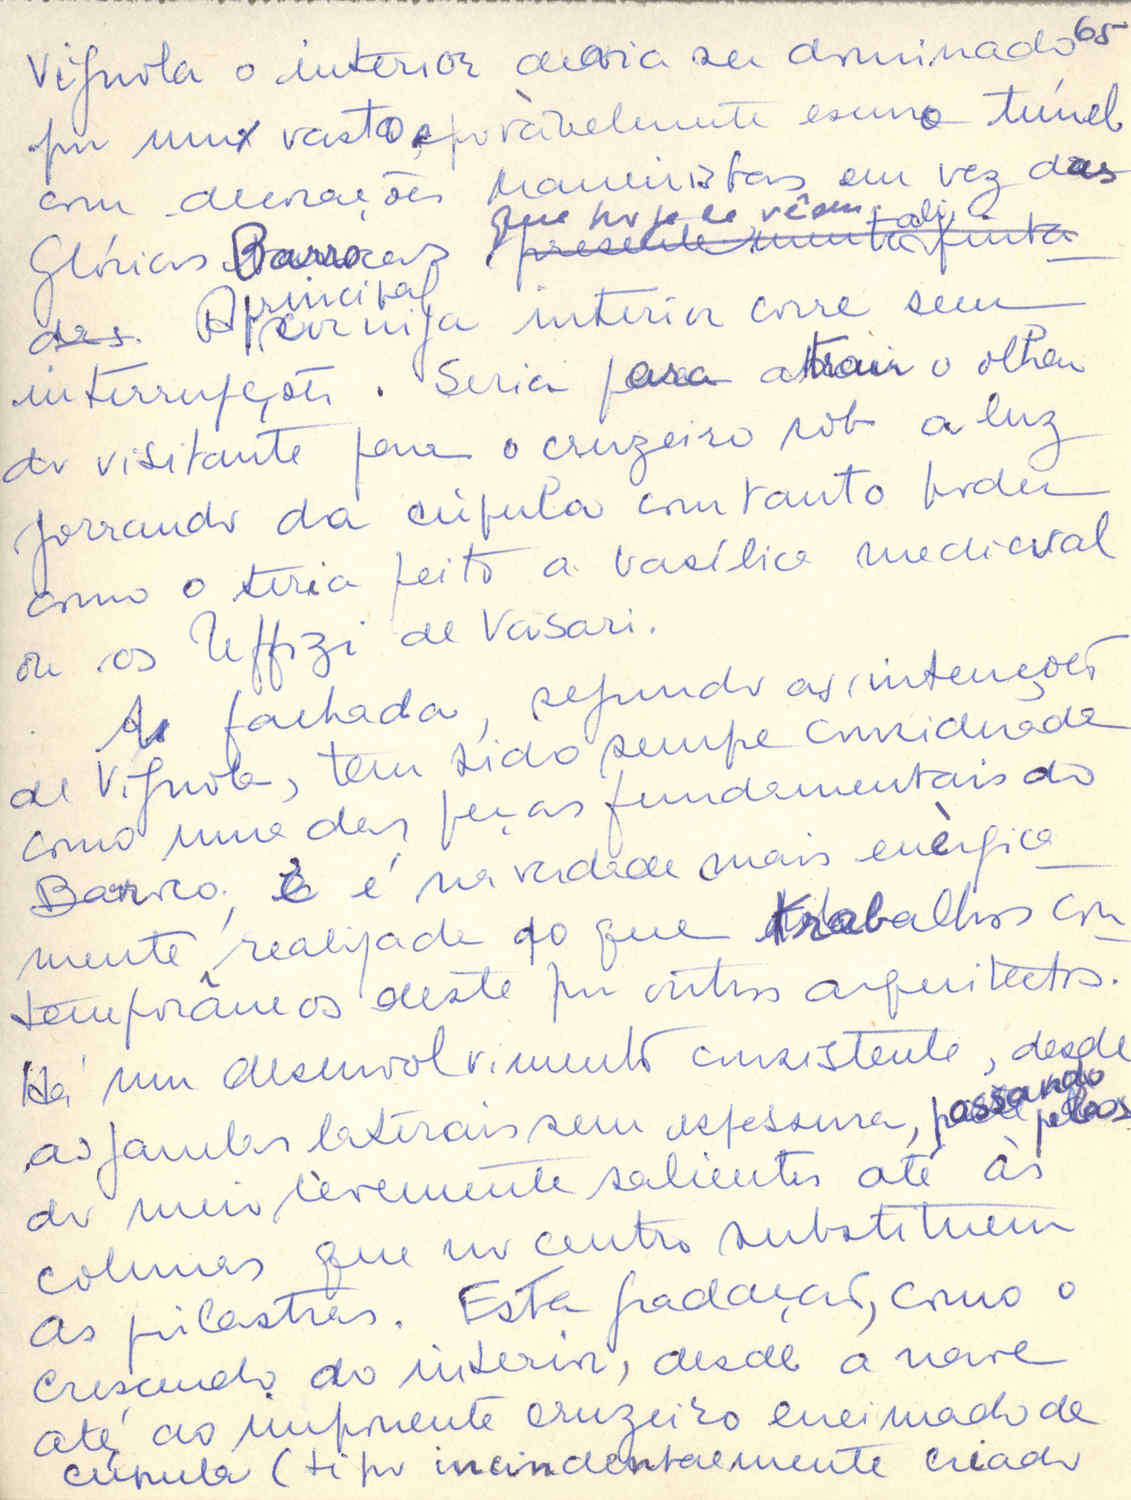 65
Vignola o interior devia ser dominado
por um vasto, e provàvelmente escuro túnel
com decorações Maneiristas em vez das
que hoje se vêem ali
Glórias Barrocas presentemente pinta-
das. A principal
cornija interior corre sem
interrupções. Seria para atrair o olhar
do visitante para o cruzeiro sob a luz
jorrando da cúpula com tanto poder
como o teria feito a vasílica medieval
ou os Uffizi de Vasari.
A fachada, segundo as intenções
de Vignola, tem sido sempre considerada
como uma das peças fundamentais do
Barroco, e é na verdade mais enèrgica-
mente realizada do que trabalhos con-
temporâneos deste por outros arquitectos.
Há um desenvolvimento consistente, desde
as jambas laterais sem espessura, passando pelos
do meio lèvemente salientes até às
colunas que no centro substituem
as pilastras. Esta gradação, como o
crescendo do interior, desde a nave
até ao imponente cruzeiro encimado de
cúpula (tipo incindentaemente criado